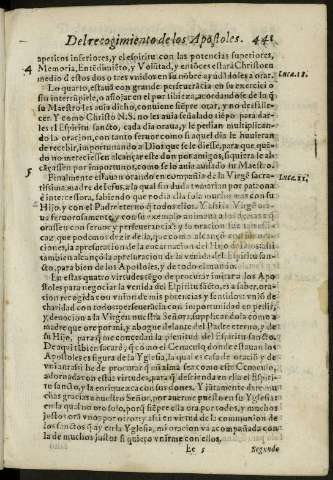 Del recogimiento de los Apostoles. 441
apeticos inferiores, y el espiritu con las potencias superiores,
4 Memoria, Entẽdimiẽto, y Volũtad, y entõces estará Christo en
medio d̃ estos dos o tres vnidos en su nõbre ayudãdoles a orar. Luca.18.
Lo quarto, estauã con grande perseuerãcia en su exercicio
sin interrũpirle, o afloxar en el por tibieza, acordãdose de lo q̃
su Maestro les auia dicho, conuiene siẽpre orar, y no desfalle-
cer. Y como Christo N.S. no les auia señalado tiẽpo para dar-
les el Espiritu sancto, cada dia oraua, y le pedian multiplican-
do la oracion, con tanto feruor como si aquel dia le huuieran
de recebir, importunando a Dios que se le diesse, para que, quã
do no mereciessen alcançar este don por amigos, siquiera le al-
cãçassen por importunos, como se lo auia auisado su Maestro.
5 Finalmente estauan orando en compañia de la Virgẽ sacra- Luca.11.
tissima madre de Iesus, a la qual sin duda tomarian por patrona
e intercessora, sabiendo que podia ella mucho mas con su
Hijo, y con el Padre eterno, q̃ todos ellos. Y assi la Virgẽ
ua feruorosamente, y con su exemplo animaua a los demas q̃
orassen con feruor y perseuerãcia, y su oracion fue
caz, que podemos dezir de la, q̃ como alcançò con sus oracio-
nes, la apresuracion de la encarnacion del Hijo de Dios, assi
tambien alcançò la apresuracion de la venida del Espiritu san-
cto, para bien de los Apostoles, y de todo el mundo.
En estas quatro virtudes tẽgo de procurar imitar a los Apo
stoles para negociar la venida del Espiritu sãcto, es a saber, ora-
cion recogida con vnion de mis potencias y sentidos: vniõ de
charidad con todos: perseuerancia con importunidad en pedir,
y deuocion a la Virgen nuestra Señora, suplicandola como a
madre que ore por mi, y abogue delante del Padre eterno, y de
su Hijo, para q̃ me concedan la plenitud del Espiritu sancto.
De aqui tãbien sacarè, q̃ como el Cenaculo donde estauan los
Apostoles es figura de la Yglesia, la qual es casa de oraciõ y de
vnion: assi he de procurar q̃ mi alma sea como este Cenaculo,
adornada con estas virtudes, para q̃ descienda en ella el Espiri-
tu sancto, y la enriquezca con sus dones. Y juntamente darè mu-
chas gracias a nuestro Señor, por auerme puesto en su Yglesia:
en la qual no solo, porq̃ siẽpre ella ora por todos, y muchos
justos orã vnos por otros: y assi en virtud de la communion de
los sanctos q̃ ay en la Yglesia, mi oracion va acompañada con
la de muchos justos si quiero vnirme con ellos.
Ee 5 Segundo